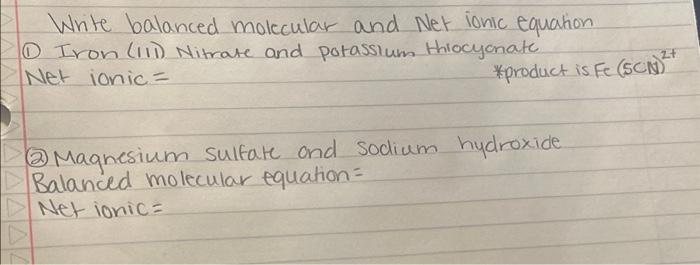 Write balanced molecular and Net ionic equation
① Iron (III) Nitrate and potassium thiocyanate
Net ionic =
*product is Fe(SCN)²⁺
② Magnesium sulfate and sodium hydroxide
Balanced molecular equation=
Net ionic=